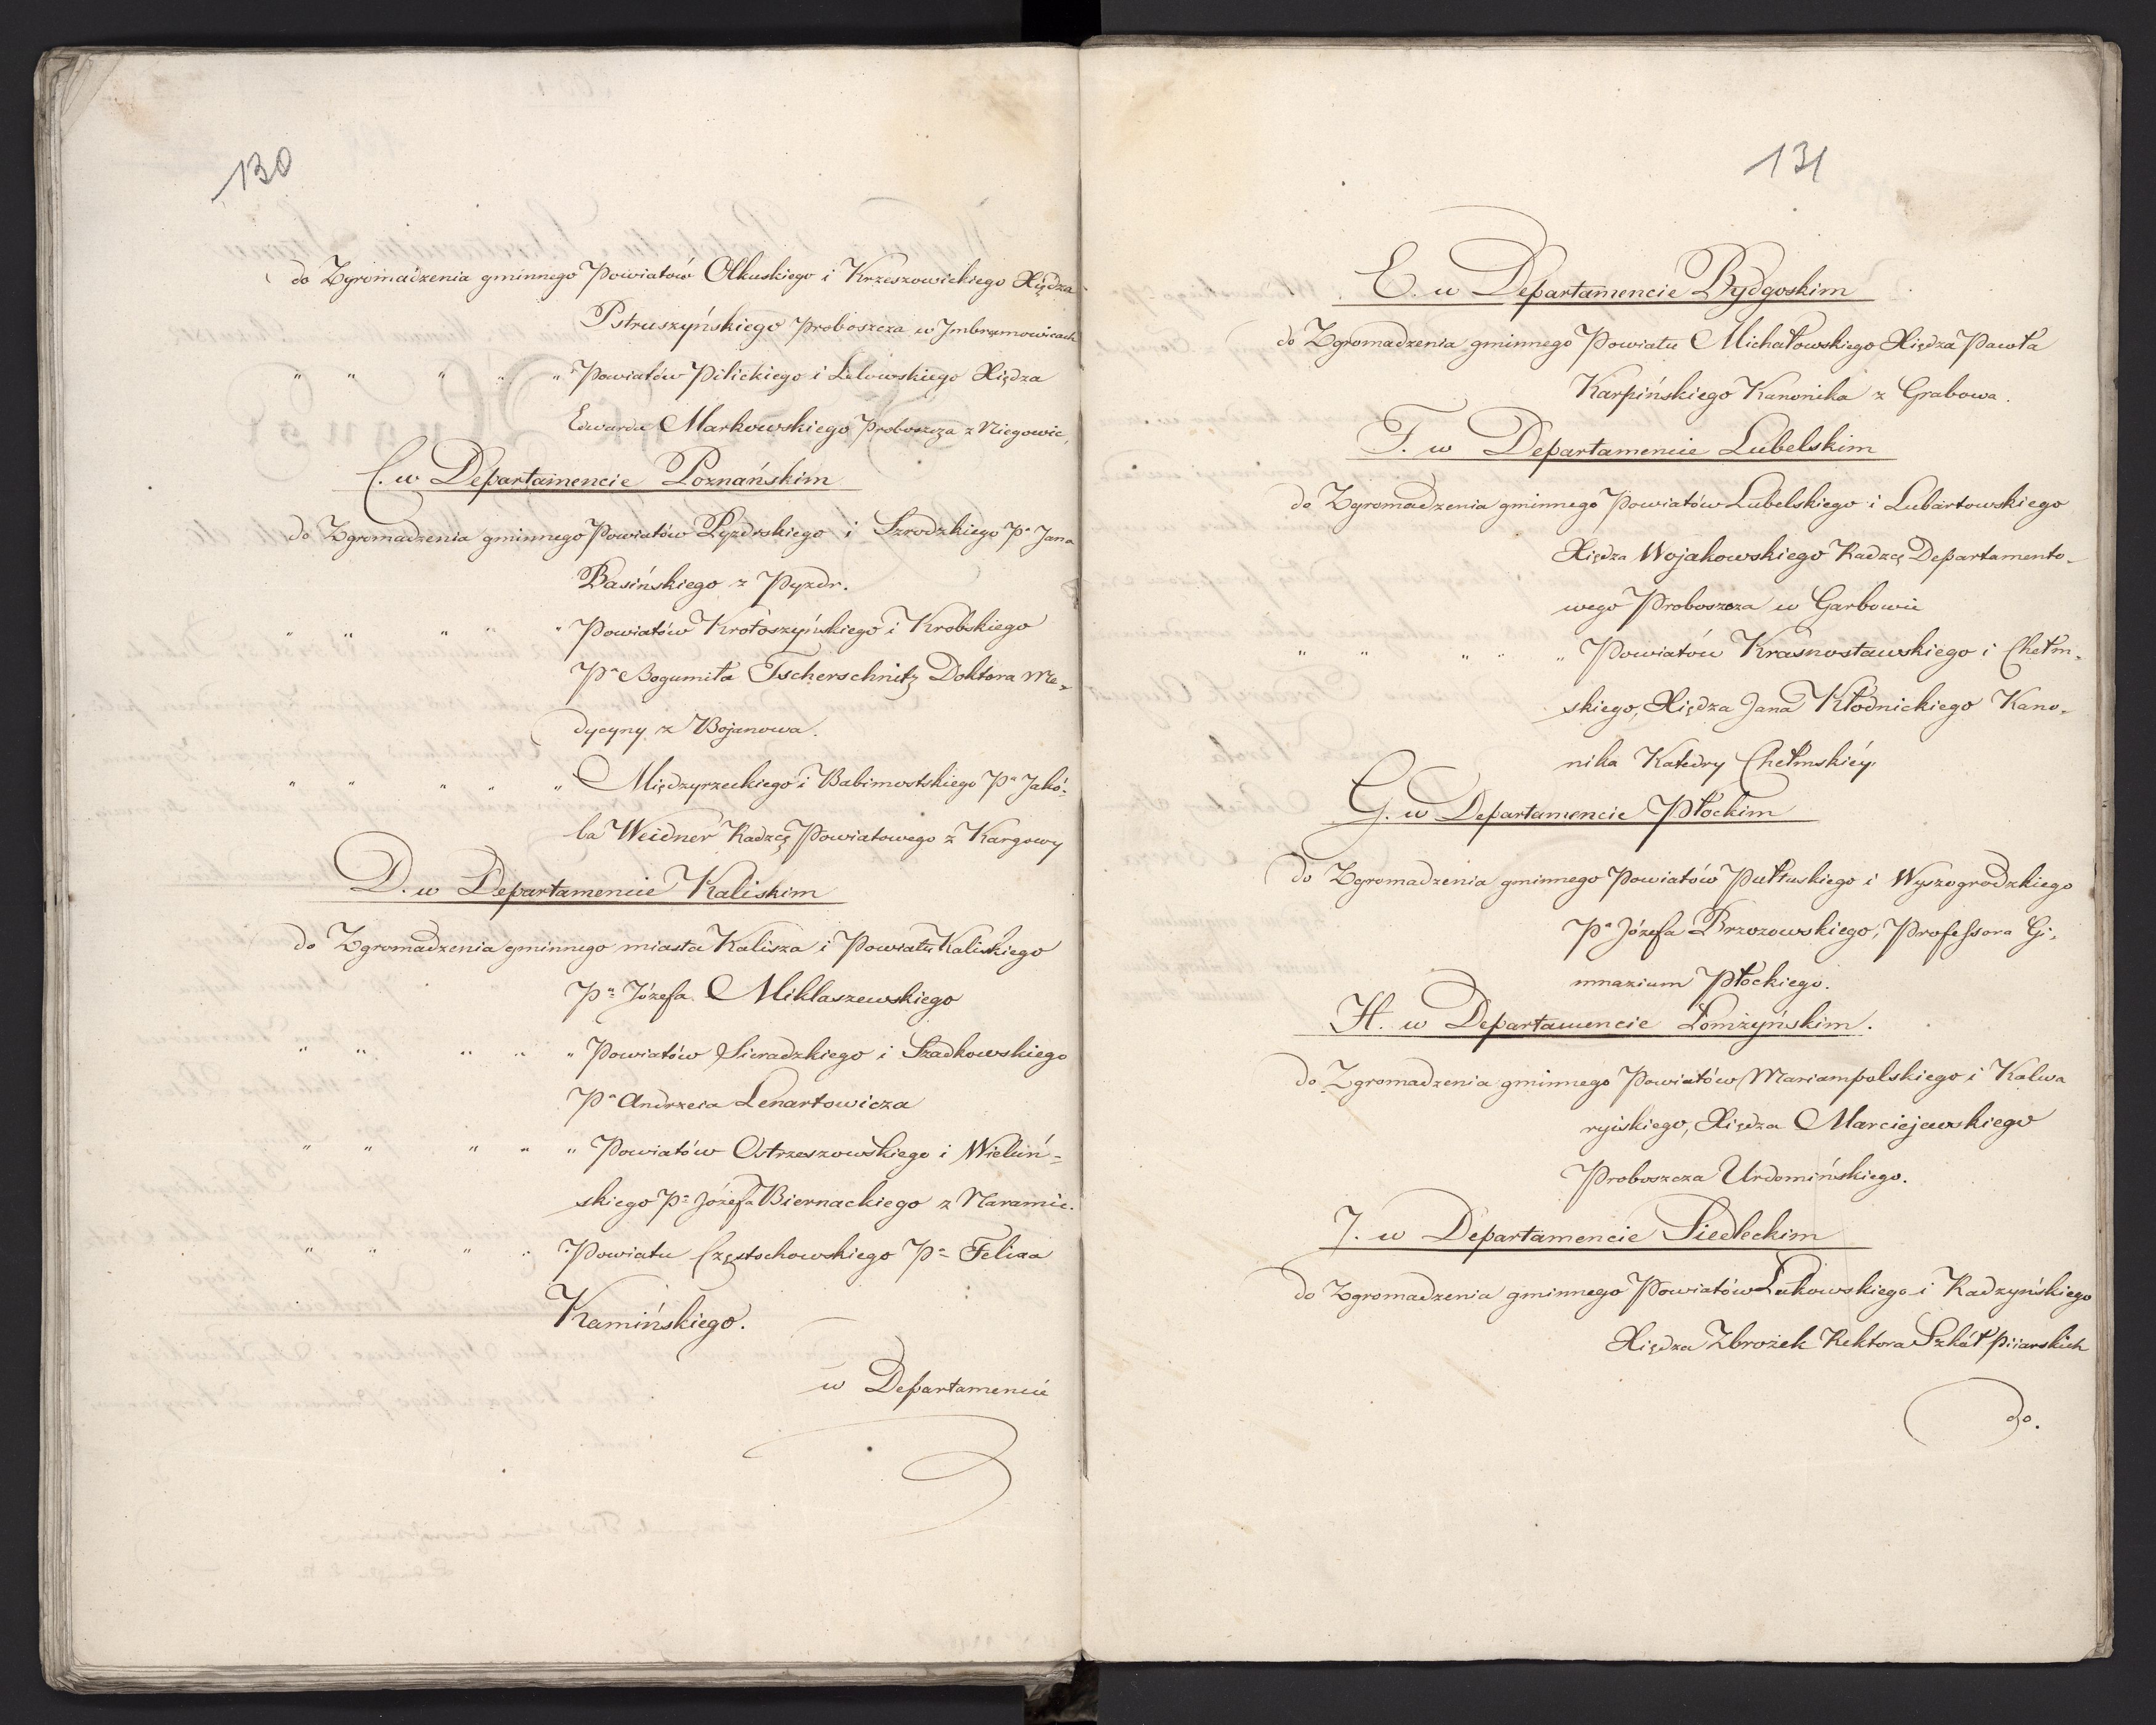 130
do Zgromadzenia gminnego Powiatów Olkuskiego i Krzeszowickiego Xiędza
Pstruszyńskiego Proboszcza w Imbramowicach
" " " " " Powiatów Pilickiego i Lelowskiego Xiędza
Edwarda Markowskiego Proboszcza z Niegowic,
C. w Departamencie Poznańskim
do Zgromadzenia gminnego Powiatów Pyzdrskiego i Szrodzkiego Pa Jana
Basińskiego z Pyzdr.
" " " " " Powiatów Krotoszyńskiego i Krobskiego
Pa Bogumiła Tscherschnitz Doktora Me-
dycyny z Bojanowa.
" " " " " Międzyrzeckiego i Babimostskiego Pa Jakó-
ba Weidner Radzcę Powiatowego z Kargowy
D. w Departamencie Kaliskim
do Zgromadzenia gminnego miasta Kalisza i Powiatu Kaliskiego
Pa Józefa Miklaszewskiego
" " " " " Powiatów Sieradzkiego i Szadkowskiego
Pa Andrzeia Lenartowicza
" " " " " Powiatów Ostrzeszowskiego i Wieluń-
skiego Pa Józefa Biernackiego z Naramic.
" " " " Powiatu Częstochowskiego Pa Felixa
Kamińskiego.
w Departamencie
131
E. w Departamencie Bydgoskim
do Zgromadzenia gminnego Powiatu Michałowskiego Xiędza Pawła
Karpińskiego Kanonika z Grabowa.
F. w Departamencie Lubelskim
do Zgromadzenia gminnego Powiatów Lubelskiego i Lubartowskiego
Xiędza Wojakowskiego Radzcę Departamento-
wego Proboszcza w Garbowie
" " " " " Powiatów Krasnostawskiego i Chełm-
skiego, Xiędza Jana Kłodnickiego Kano-
nika Katedry Chełmskiéy
G. w Departamencie Płockim
do Zgromadzenia gminnego Powiatów Pułtuskiego i Wyszogrodzkiego
Pa Józefa Brzozowskiego, Professora Gi-
mnazium Płockiego.
H. w Departamencie Łomżyńskim.
do Zgromadzenia gminnego Powiatów Mariampolskiego i Kalwa
ryiskiego, Xiędza Marciejewskiego
Proboszcza Urdomińskiego.
J. w Departamencie Siedleckim
do Zgromadzenia gminnego Powiatów Łukowskiego i Radzyńskiego
Xiędza Zbrożek Rektora Szkół piiarskich
do.